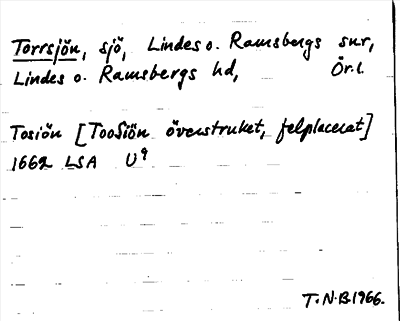 Torrsjön, sjö, Lindes o. Ramsbergs snr,
Lindes o. Ramsbergs hd, Ör.l.
Tosiön [TooSiön överstruket, felplacerat]
1662 LSA U⁹
T.N.B.1966.